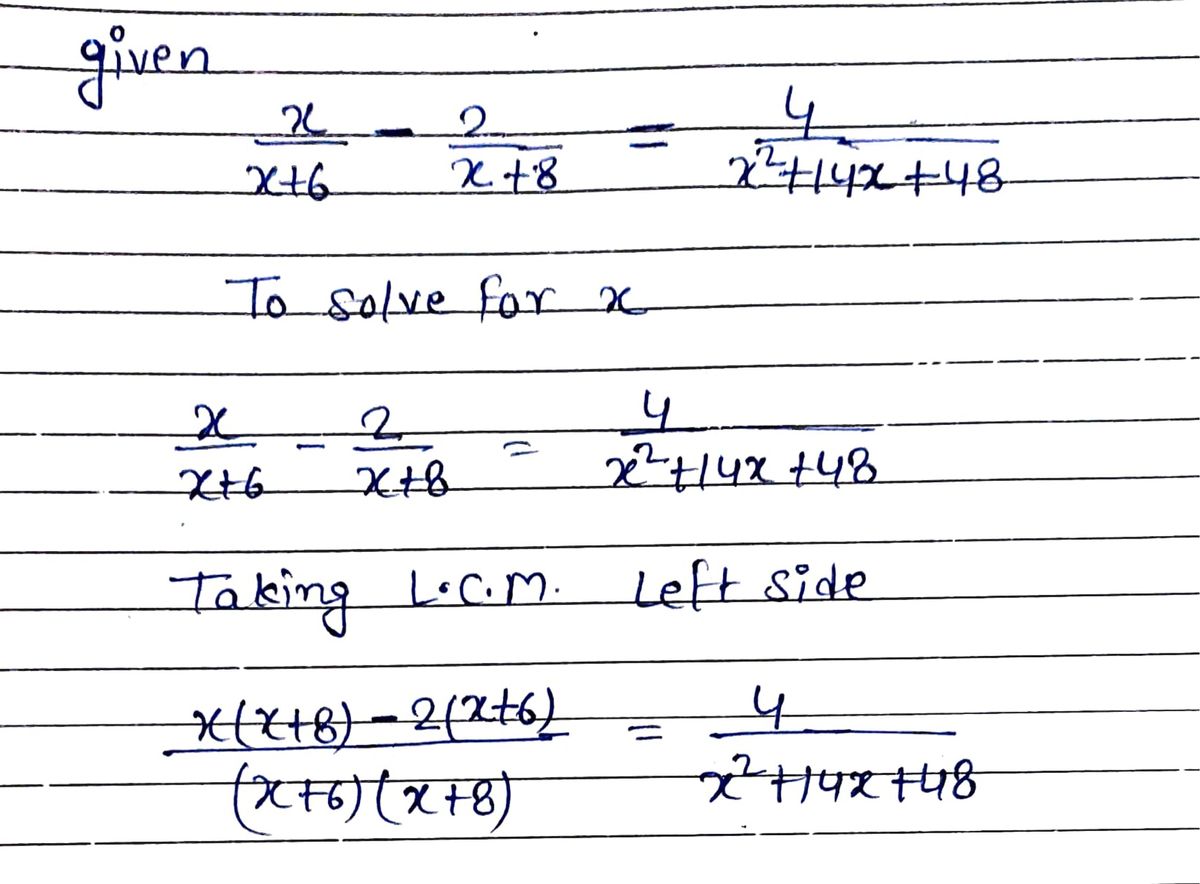 given
x/(x+6) - 2/(x+8) = 4/(x²+14x+48)
To solve for x
x/(x+6) - 2/(x+8) = 4/(x²+14x+48)
Taking L.C.M. Left side
(x(x+8)-2(x+6))/((x+6)(x+8)) = 4/(x²+14x+48)